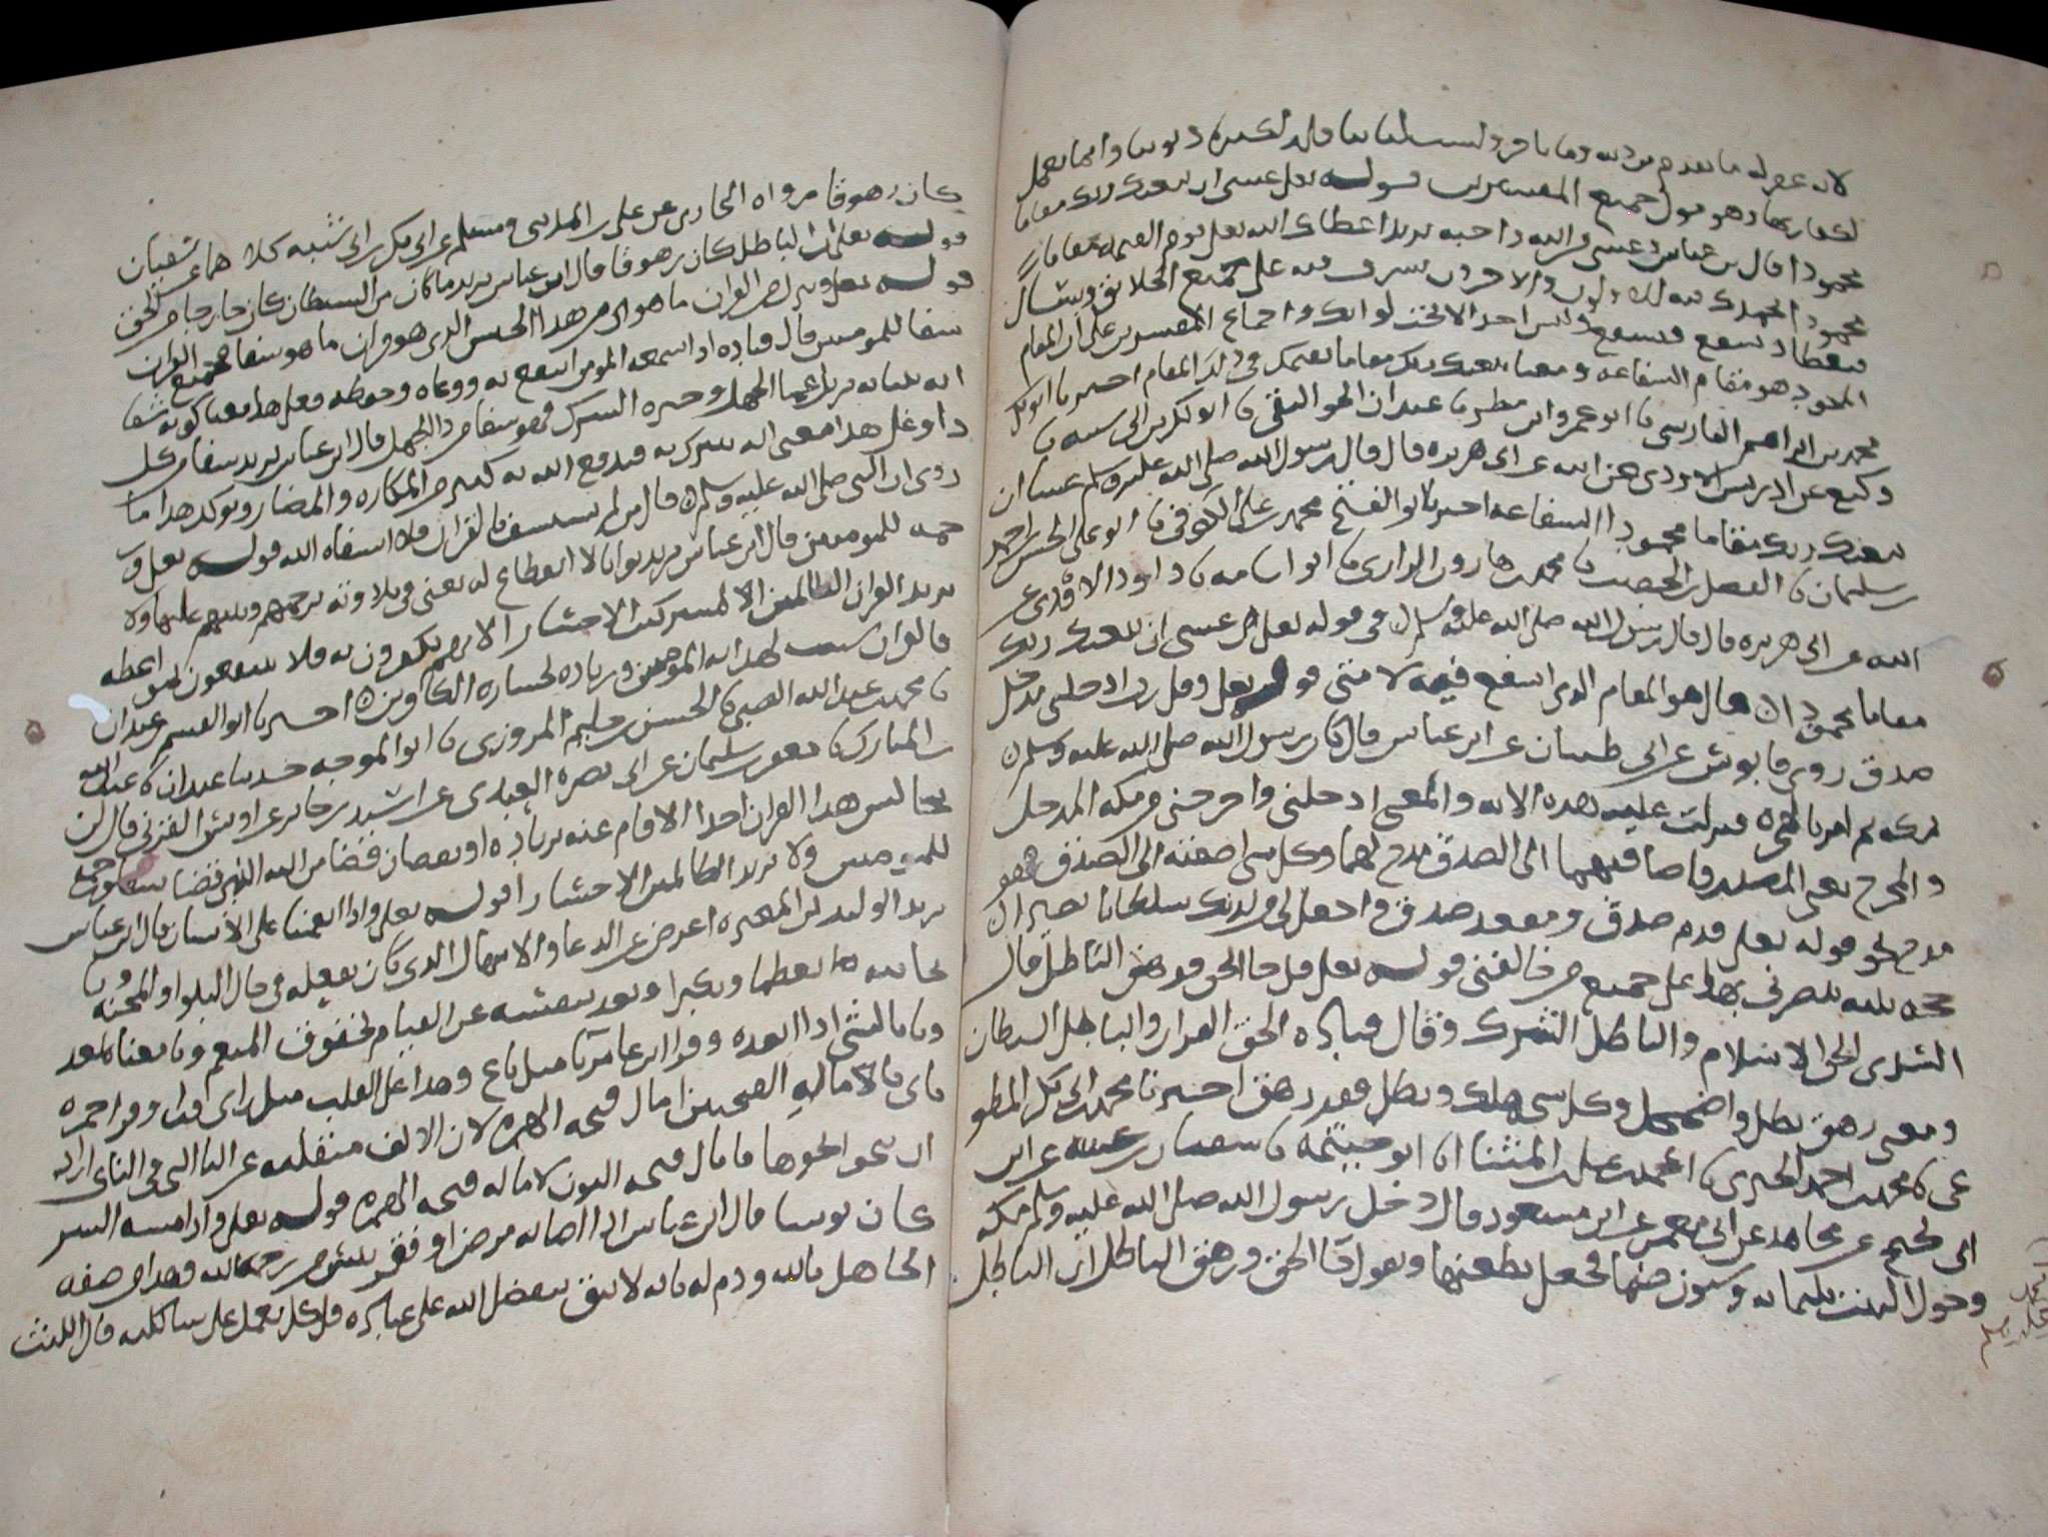 لانه غفر له ما تقدم من ذنبه وما تاخر وليست لنا بنافلة لكثرة ذنوبنا وانما نعمل
لكفارتها وهو قول جميع المفسرين قوله تعالى عسى ان يبعثك ربك مقاما
محمودا قال ابن عباس عسى من الله واجبة يريد اعطاك الله تعالى يوم القيمة مقاما
محمودا يحمدك فيه الاولون والاخرون تشرف فيه على جميع الخلائق وتسال
فتعطا وتشفع فتشفع وليس احد الا تحت لوائك واجماع المفسرين على ان المقام
المحمود هو مقام الشفاعة ومعنا يبعثك ربك مقاما يقيمك في ذلك المقام اخبرنا ابو بكر
محمد بن ابراهيم الفارسي نا ابو عمرو ابن مطر نا ابو بكر بن ابي شيبة نا
وكيع عن ادريس الاودي عن ابيه عن ابي هريرة قال قال رسول الله صلى الله عليه وسلم عسى ان
يبعثك ربك مقاما محمودا الشفاعة اخبرنا ابو الفتح محمد بن علي الكوفي نا ابو علي الحسن بن احمد
بن سليمان نا الفضل بن الخصيب نا محمد بن هارون الرازي نا ابو اسامة نا داود الاودي عن
ابيه عن ابي هريرة قال قال رسول الله صلى الله عليه وسلم في قوله تعالى عسى ان يبعثك ربك
مقاما محمودا قال هو المقام الذي اشفع فيه لامتي قوله تعالى وقل رب ادخلني مدخل
صدق روى قابوس عن ابي ظبيان عن ابن عباس قال كان رسول الله صلى الله عليه وسلم
بمكة ثم امر بالهجرة فنزلت عليه هذه الاية والمعنى ادخلني واخرجني من مكة المدخل
والمخرج بمعنى المصدر واضافتهما الى الصدق مدح لهما وكل شي اضفته الى الصدق فهو
مدح نحو قوله تعالى قدم صدق ومقعد صدق واجعل لي من لدنك سلطانا نصيرا
حجة بينة تنصرني بها على جميع من خالفني قوله تعالى وقل جا الحق وزهق الباطل قال
السدي الحق الاسلام والباطل الشرك وقال قتادة الحق القران والباطل الشيطان
ومعنى زهق بطل واضمحل وكل شي هلك وبطل فقد زهق اخبرنا محمد بن ابي بكر المطو
عي نا محمد بن احمد الحيري نا احمد بن علي بن المثنا نا ابو خيثمة نا سفيان بن عيينة عن ابن
ابي نجيح عن مجاهد عن ابي معمر عن ابن مسعود قال دخل رسول الله صلى الله عليه وسلم مكة
وحول البيت ثلثماية وستون صنما فجعل يطعنها ويقول جا الحق وزهق الباطل ان الباطل
كان زهوقا رواه البخاري عن علي بن المديني ومسلم عن ابي بكر بن ابي شيبة كلاهما عن سفيان
قوله تعالى ان الباطل كان زهوقا قال ابن عباس يريد ما كان من الشيطان كان خارجا من الحق
قوله تعالى وننزل من القران ما هو اي من هذا الجنس الذي هو قران ما هو شفا فجميع القران
شفا للمومنين قال قتادة اذا سمعه المومن انتفع به ووعاه وحفظه فعلى هذا معنا كونه شفا
انه ببيانه يزيل عما الجهل وحيرة الشرك فهو شفا من دا الجهل قال ابن عباس يريد شفا من كل
دا وعلى هذا معنى انه يتبرك به فيدفع الله به كثيرا من المكاره والمضار ويوكد هذا ما
روي ان النبي صلى الله عليه وسلم قال من لم يستشف بالقران فلا شفاه الله قوله تعالى و
رحمة للمومنين قال ابن عباس يريد ثوابا لا انقطاع له يعني في تلاوته يرحمهم ويثيبهم عليها ولا
يزيد القران الظالمين المشركين الا خسارا لانهم يكفرون به فلا ينتفعون بمواعظه
فالقران سبب لهداية المومنين وزيادة لخسارة الكافرين اخبرنا ابو القسم بن عبدان
نا محمد بن عبد الله الضبي نا الحسن بن حليم المروزي نا ابو الموجه حدثنا عبدان نا عبد الله
بن المبارك نا جعفر بن سليمان عن ابي نضرة العبدي عن اسير بن جابر عن اويس القرني قال لن
يجالس هذا القران احد الا قام عنه بزيادة او نقصان فقضا من الله الذي قضا شفا ورحمة
للمومنين ولا يزيد الظالمين الا خسارا قوله تعالى واذا انعمنا على الانسان قال ابن عباس
يريد الوليد بن المغيرة اعرض عن الدعا والابتهال الذي كان يفعله في حال البلوا والمحنة
ونا بجانبه تعظما وتكبرا وبعد بنفسه عن القيام بحقوق المنعم ونا معناه بعد
وناى بالشي اذا ابعده وقرا ابن عامر نا مثل باع وهذا على القلب مثل راى وقرا حمزة
ناى بامالة الفتحتين امال فتحة الهمزة لان الالف منقلبة عن اليا التي في الناي اراد
ان ينحو نحوها فامال فتحة النون لامالة فتحة الهمزة قوله تعالى واذا مسه الشر
كان يوسا قال ابن عباس اذا اصابه مرض او فقر يئس من رحمة الله وهذا من صفة
الجاهل بالله وذم له بانه لا يثق بتفضل الله على عباده قل كل يعمل على شاكلته قال الليث